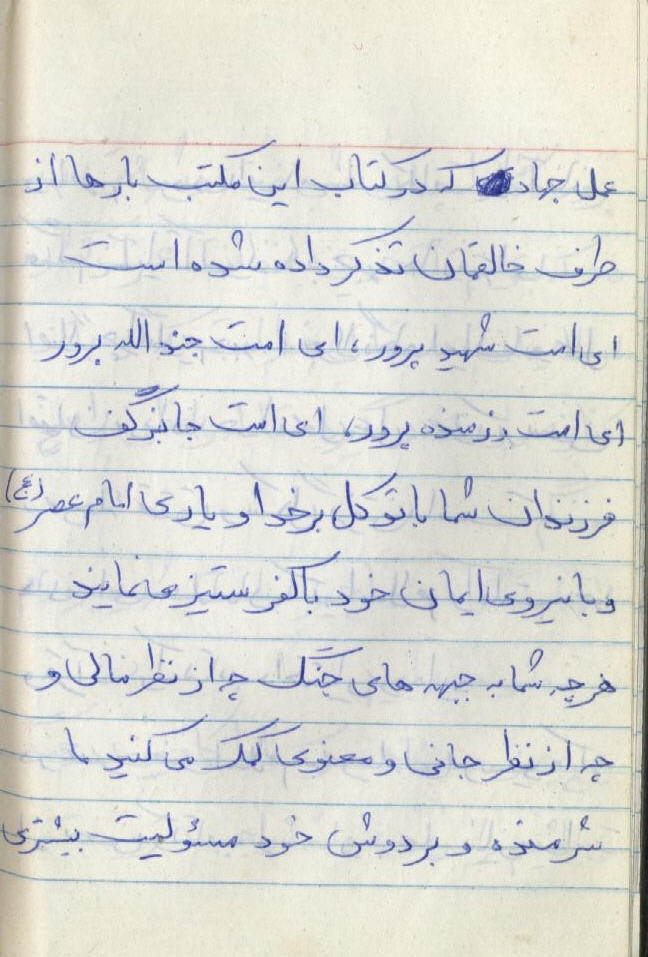 عمل جهاد که در کتاب این مکتب بارها از
طرف خالقمان تذکر داده شده است
ای امت شهید پرور، ای امت جند الله پرور
ای امت رزمنده پرور، ای امت جان بر کف
فرزندان شما با توکل بر خدا و یاری امام عصر (عج)
و با نیروی ایمان خود با کفر ستیز می نمایند
هر چه شما به جبهه های جنگ چه از نظر مالی و
چه از نظر جانی و معنوی کمک می کنید ما
شرمنده و بر دوش خود مسئولیت بیشتری